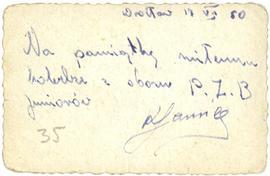 17 VI 50
Na pamiątkę miłemu
koledze z obozu P.Z.B
juniorów
35